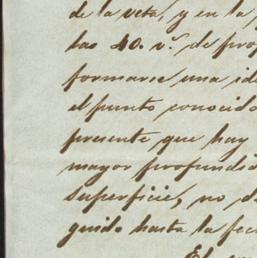 de la veta, y en la
las 40. v.s de pro
formarse una id
el punto conocido
presente que hay
mayor profundi
superficie, no d
guido hasta la fec
El